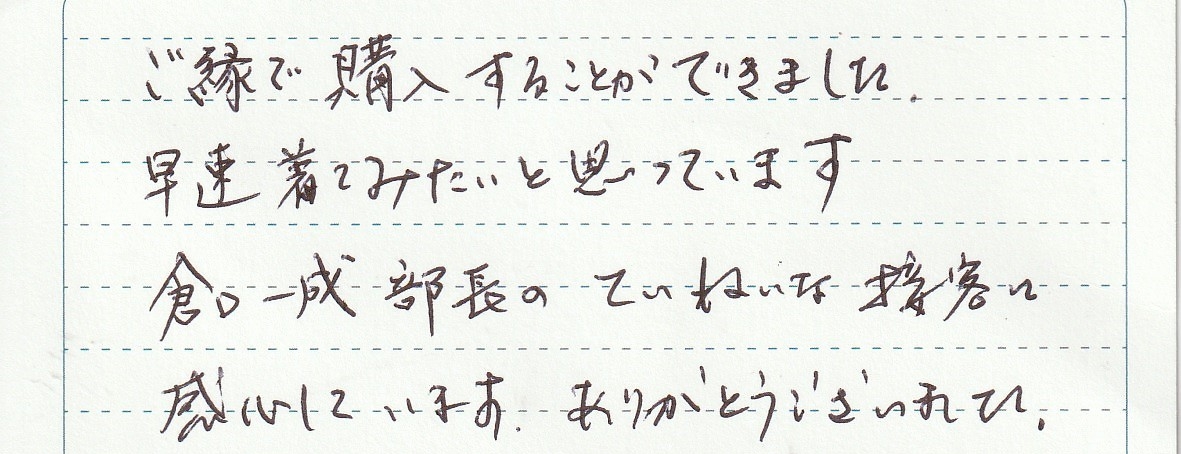 ご縁で購入することができました.
早速着てみたいと思っています
倉口一成部長のていねいな接客に
感心しています. ありがとうございました.